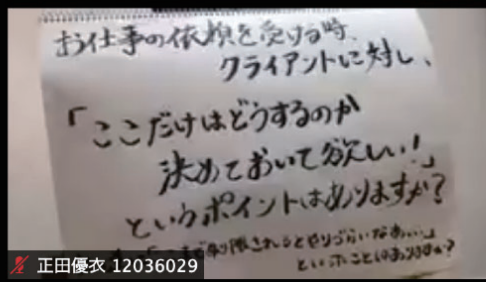 お仕事の依頼を受ける時、
クライアントに対し、
「ここだけはどうするのか
決めておいて欲しい!」
というポイントはありますか?
制限されるとやりづらいなあ…」
ということはありますか?
正田優衣 12036029